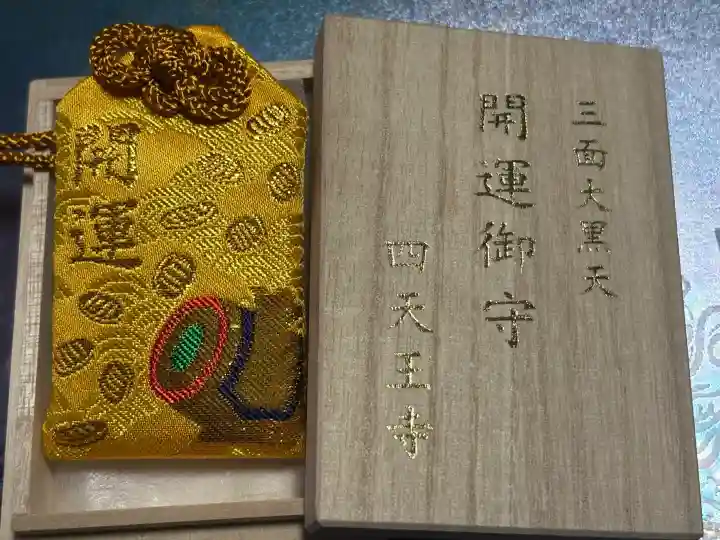 開運
三面大黒天
開運御守
四天王寺